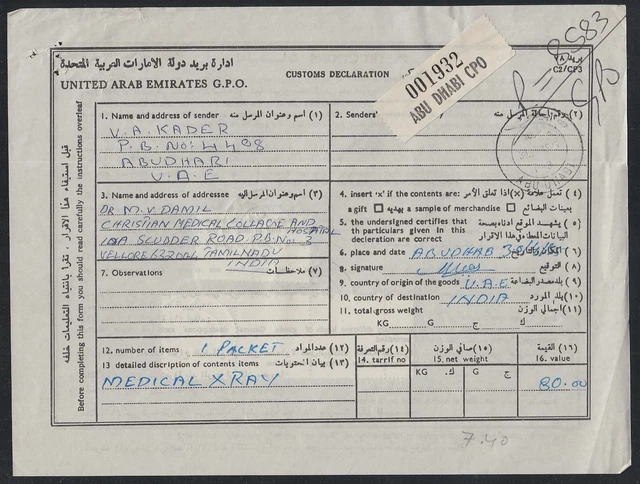 ادارة بريد دولة الامارات العربية المتحدة
UNITED ARAB EMIRATES G.P.O.
CUSTOMS DECLARATION
001932
ABU DHABI CPO
C2/CP3
قبل استيفاء هذا الاقرار، تقرأ بانتباه التعليمات خلفه
Before completing this form you should read carefully the instructions overleaf
1. Name and address of sender (١) اسم وعنوان المرسل منه
V. A. KADER
P. B. No: 4498
ABUDHABI
U. A. E
2. Senders'
3. Name and address of addressee (٣) اسم وعنوان المرسل اليه
DR. M. V. DANIL
CHRISTIAN MEDICAL COLLAGE AND
HOSPITAL
IDA SCUDDER ROAD P.B. No: 3
VELLORE TAMILNADU
INDIA
4. insert 'x' if the contents are:
a gift يهديه or a sample of merchandise بعينات البضائع
5. the undersigned certifies that
th particulars given in this
declaration are correct
6. place and date ABUDHAB (٦)
8. signature التوقيع
9. country of origin of the goods U.A.E بلد مصدر البضاعة (٩)
10. country of destination INDIA (١٠)
11. total gross weight (١١) اجمالي الوزن
KG ك. G ج
7. Observations (٧) ملاحظات
12. number of items 1 PACKET (١٢) عدد المواد
13 detailed discription of contents items (١٣) بيان المحتويات
MEDICAL X RAY
(١٤) رقم التعرفة
14. tarrif no
(١٥) صافي الوزن
15. net weight
KG ك. G ج
(١٦) القيمة
16. value
20.00
7.40